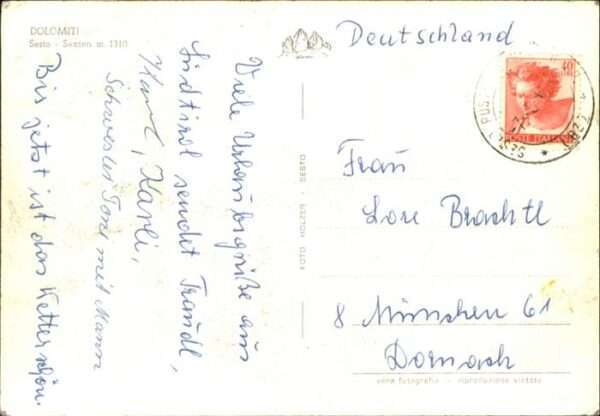 DOLOMITI
Sesto - Sexten m. 1310
Viele Urlaubsgrüße aus
Südtirol sendet Traudl,
Karl, Karli,
Schwester Toni mit Mann
Bis jetzt ist das Wetter schön.
FOTO HOLZER - SESTO
Deutschland
40
POSTE ITALIANE
Frau
Lore Brachtl
8 München 61
Dornach
vera fotografia - riproduzione vietata